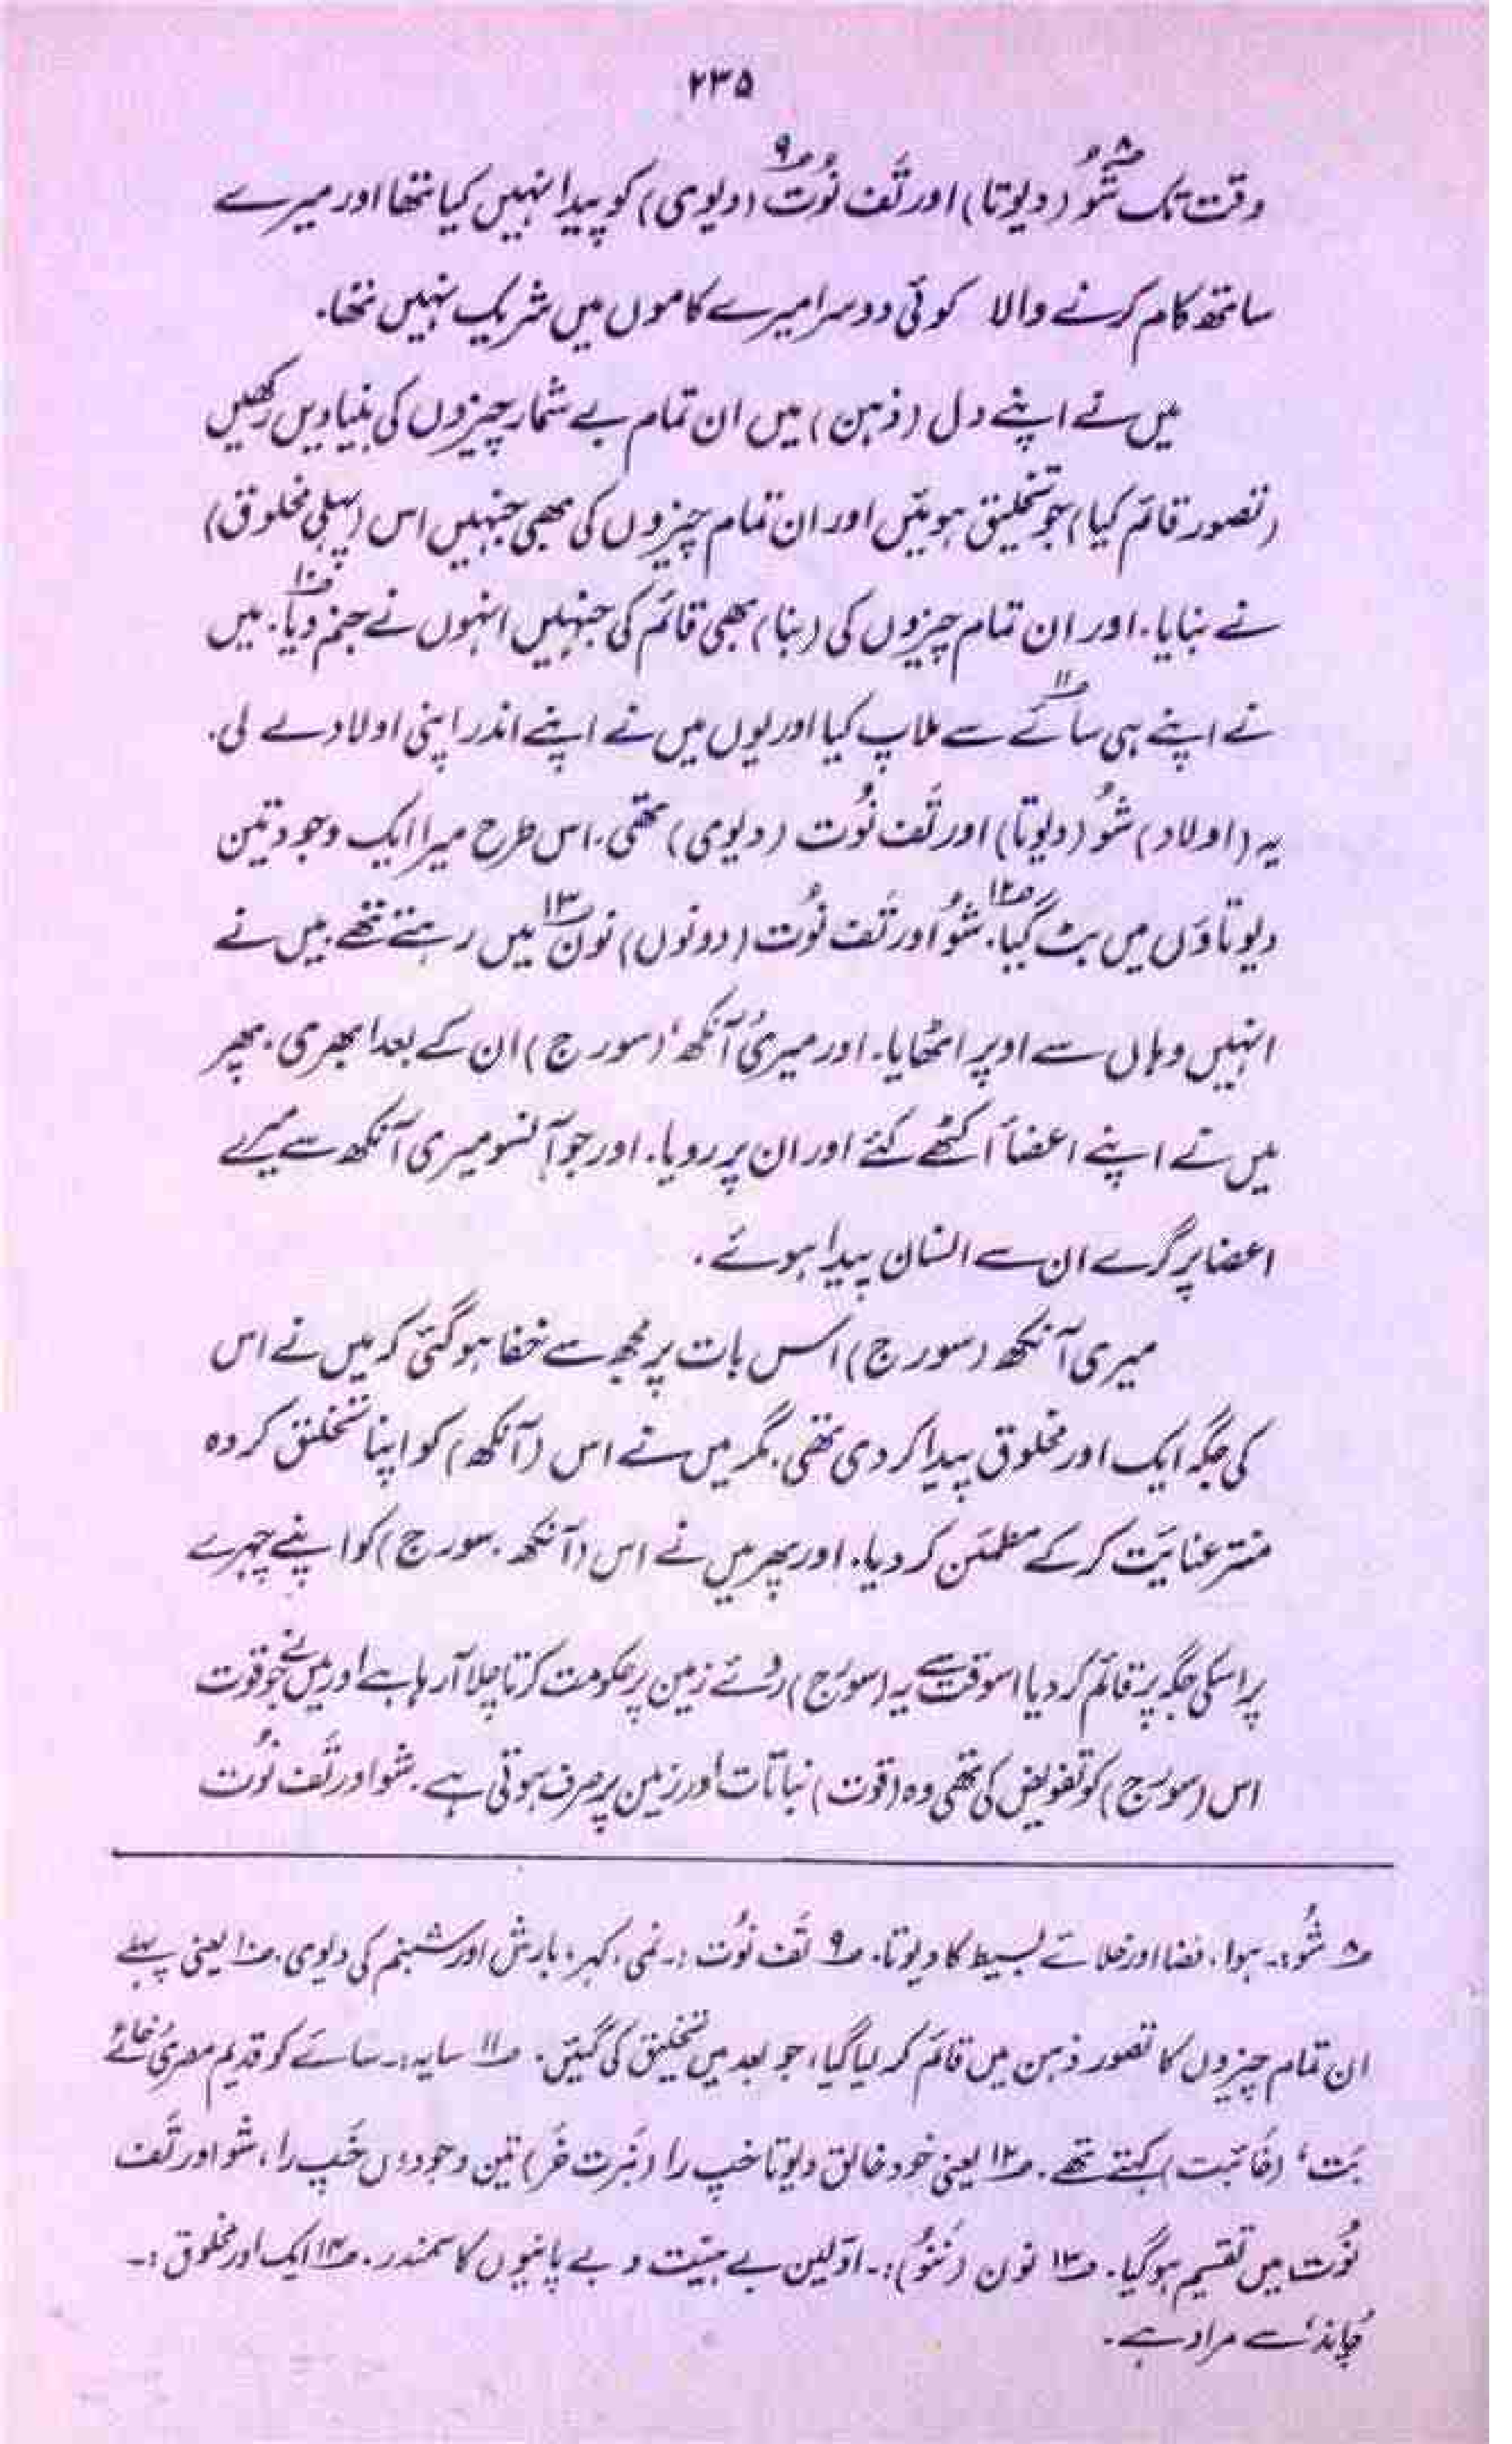 ۲۳۵
وقت تک شُو۸ (دیوتا) اور تَف نُوت۹ (دیوی) کو پیدا نہیں کیا تھا اور میرے
ساتھ کام کرنے والا کوئی دوسرا میرے کاموں میں شریک نہیں تھا۔
میں نے اپنے دل (ذہن) میں ان تمام بے شمار چیزوں کی بنیادیں رکھیں
(تصور قائم کیا) جو تخلیق ہوئیں اور ان تمام چیزوں کی بھی جنہیں اس (پہلی مخلوق)
نے بنایا۔ اور ان تمام چیزوں کی (بنا) بھی قائم کی جنہیں انہوں نے جنم دیا۱۰۔ میں
نے اپنے ہی سائے۱۱ سے ملاپ کیا اور یوں میں نے اپنے اندر اپنی اولاد لے لی۔
یہ (اولاد) شُو (دیوتا) اور تَف نُوت (دیوی) تھی۔ اس طرح میرا ایک وجود تین
دیوتاؤں میں بٹ گیا۱۲۔ شُو اور تَف نُوت (دونوں) نُون۱۳ میں رہتے تھے۔ میں نے
انہیں وہاں سے اوپر اٹھایا۔ اور میری ’آنکھ‘ (سورج) ان کے بعد ابھری۔ پھر
میں نے اپنے اعضأ اکٹھے کئے اور ان پر رویا۔ اور جو آنسو میری آنکھ سے میرے
اعضا پر گرے ان سے انسان پیدا ہوئے۔
میری آنکھ (سورج) اس بات پر مجھ سے خفا ہو گئی کہ میں نے اس
کی جگہ ایک اور مخلوق پیدا کر دی تھی۔ مگر میں نے اس (آنکھ) کو اپنا تخلیق کردہ
منتر عنایت کر کے مطمئن کر دیا۔ اور پھر میں نے اس (آنکھ۔ سورج) کو اپنے چہرے
پر اسکی جگہ پر قائم کر دیا اسوقت سے یہ (سورج) روئے زمین پر حکومت کرتا چلا آ رہا ہے اور میں نے جو قوت
اس (سورج) کو تفویض کی تھی وہ (قوت) نباتات اور زمین پر صرف ہوتی ہے۔ شو اور تَف نُوت
؎۸ شُو:۔ ہوا، فضا اور خلائے بسیط کا دیوتا۔ ؎۹ تَف نُوت :۔ نمی، کہر، بارش اور شبنم کی دیوی۔ ؎۱۰ یعنی پہلے
ان تمام چیزوں کا تصور ذہن میں قائم کر لیا گیا، جو بعد میں تخلیق کی گئیں۔ ؎۱۱ سایہ:۔ سائے کو قدیم مصری ’خائے
بَت‘ (خَائبت) کہتے تھے۔ ؎۱۲ یعنی خود خالق دیوتا خپ را (نَبرت خَر) تین وجودوں خَپ را، شو اور تَف
نُوت میں تقسیم ہو گیا۔ ؎۱۳ نون (نُنُو):۔ اوّلین بے ہیئت و بے پانیوں کا سمندر۔ ؎۱۴ ایک اور مخلوق :۔
’چاند‘ سے مراد ہے۔